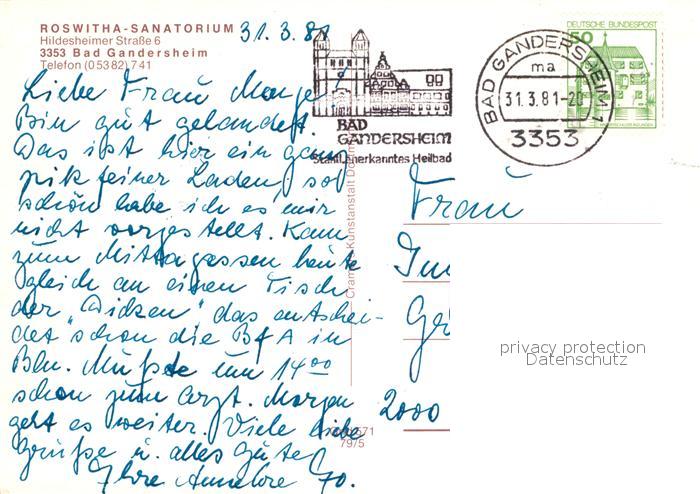 ROSWITHA-SANATORIUM
Hildesheimer Straße 6
3353 Bad Gandersheim
Telefon (0 53 82) 741
31.3.81
Liebe Frau
Bin gut gelandet.
Das ist hier ein ganz
pikfeiner Laden, so
schön habe ich es mir
nicht vorgestellt. Kam
zum Mittagessen heute
gleich an einen Tisch
der "Dicken" das entschei-
det schon die BfA in
Bln. Mußte um 14 00
schon zum Arzt. Morgen
geht es weiter. Viele liebe
Grüße u. alles Gute
Ihre Annelore Jo.
BAD
GANDERSHEIM
Staatl. anerkanntes Heilbad
BAD GANDERSHEIM 1
ma
31.3.81-20
3353
DEUTSCHE BUNDESPOST
50
Frau
2000
79/5
privacy protection
Datenschutz